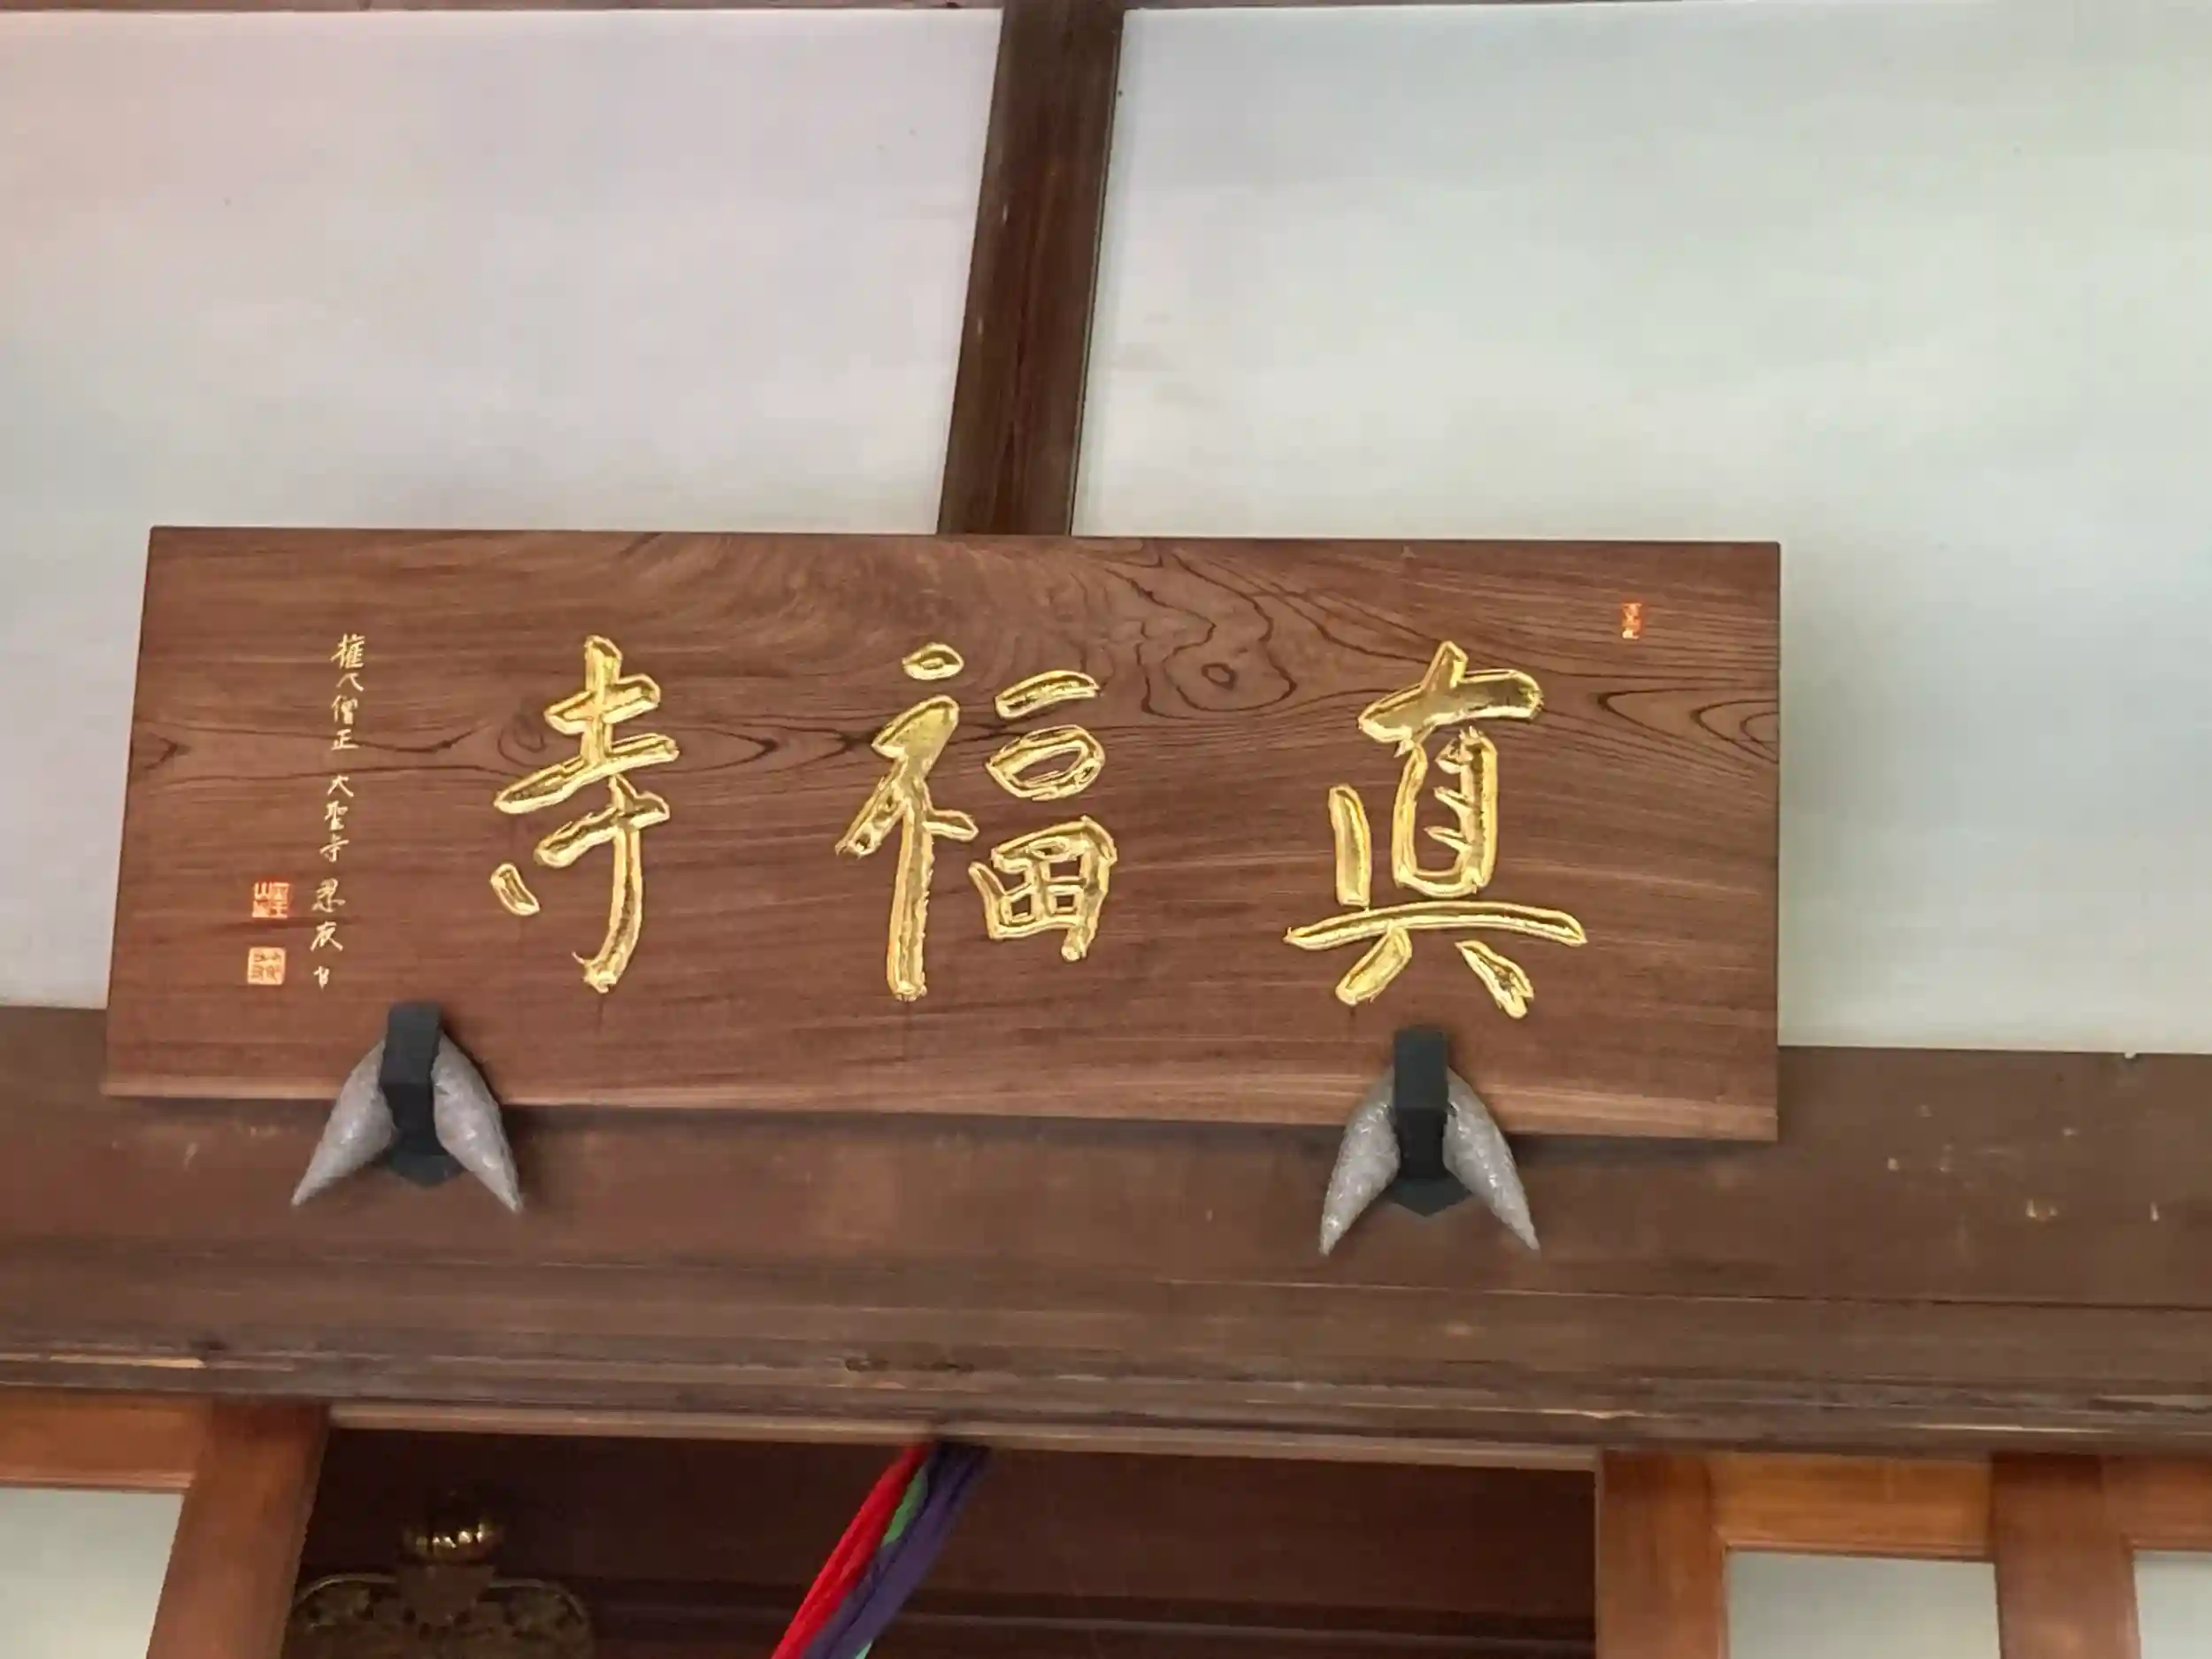 真福寺
權大僧正 大聖寺